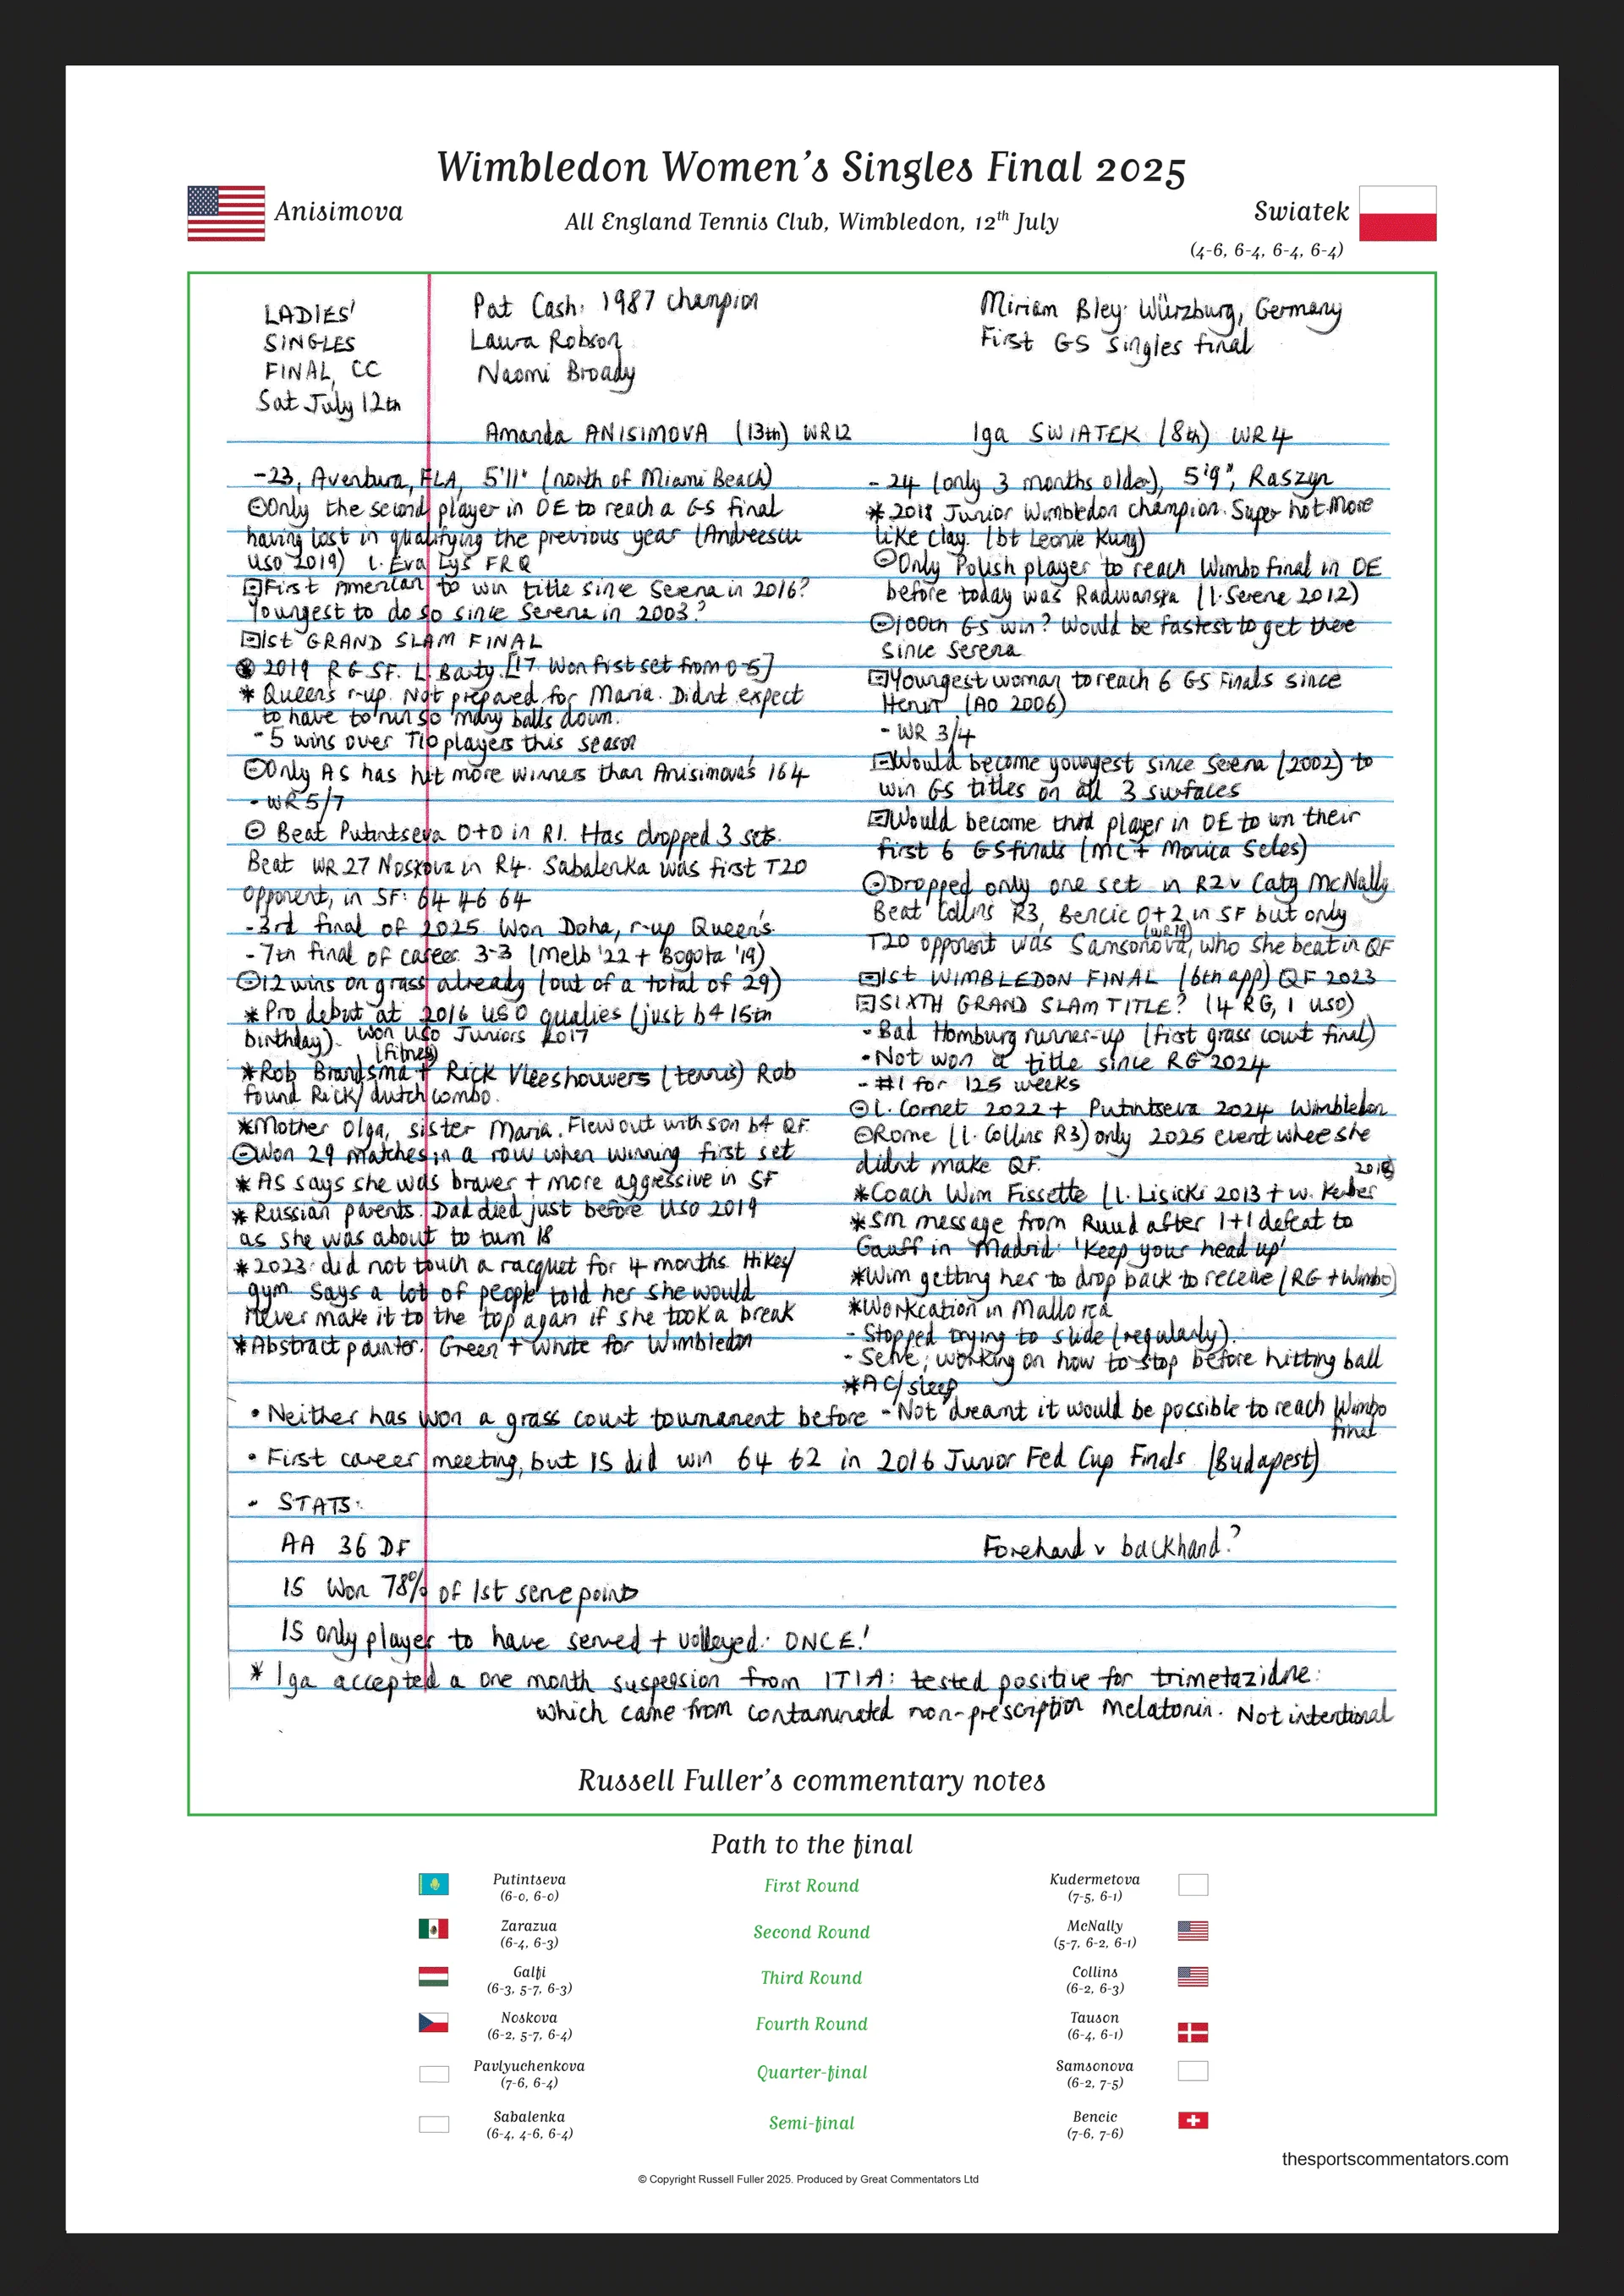 Wimbledon Women's Singles Final 2025
Anisimova
All England Tennis Club, Wimbledon, 12th July
Swiatek
(4-6, 6-4, 6-4, 6-4)
LADIES'
SINGLES
FINAL, CC
Sat July 12th
Pat Cash: 1987 champion
Laura Robson
Naomi Broady
Miriam Bley: Würzburg, Germany
First GS singles final
Amanda ANISIMOVA (13th) WR12
-23, Aventura, FLA, 5'11" (north of Miami Beach)
Only the second player in OE to reach a GS final
having lost in qualifying the previous year (Andreescu
USO 2019) L. Eva Lys FRQ
First American to win title since Serena in 2016?
Youngest to do so since Serena in 2003?
1st GRAND SLAM FINAL
2019 RG SF. L. Barty. [17. Won first set from 0-5]
* Queen's r-up. Not prepared for Maria. Didnt expect
to have to run so many balls down.
- 5 wins over T10 players this season
Only AS has hit more winners than Anisimova's 164
- WR 5/7
Beat Putintseva 0+0 in R1. Has dropped 3 sets.
Beat WR 27 Noskova in R4. Sabalenka was first T20
opponent, in SF: 64 46 64
-3rd final of 2025. Won Doha, r-up Queen's.
- 7th final of career. 3-3 (Melb '22 + Bogota '19)
12 wins on grass already (out of a total of 29)
* Pro debut at 2016 USO qualies (just b4 15th
birthday). Won USO Juniors 2017
(fitness)
*Rob Brandsma + Rick Vleeshouwers (tennis) Rob
found Rick/dutch combo.
*Mother Olga, sister Maria. Flew out with son b4 QF.
Won 29 matches in a row when winning first set
* AS says she was braver + more aggressive in SF
* Russian parents. Dad died just before USO 2019
as she was about to turn 18
* 2023: did not touch a racquet for 4 months. Hikes/
gym. Says a lot of people told her she would
never make it to the top again if she took a break
*Abstract painter. Green + white for Wimbledon
Iga SWIATEK (8th) WR 4
- 24 (only 3 months older), 5'9", Raszyn
* 2018 Junior Wimbledon champion. Super hot. More
like clay. (bt Leonie Kung)
Only Polish player to reach Wimbo final in OE
before today was Radwanska (l. Serena 2012)
100th GS win? Would be fastest to get there
since Serena
Youngest woman to reach 6 GS Finals since
Henin (AO 2006)
- WR 3/4
Would become youngest since Serena (2002) to
win GS titles on all 3 surfaces
Would become third player in OE to win their
first 6 GS finals (MC + Monica Seles)
Dropped only one set in R2 v Caty McNally
Beat Collins R3, Bencic 0+2 in SF but only
(WR19)
T20 opponent was Samsonova, who she beat in QF
1st WIMBLEDON FINAL (6th app) QF 2023
SIXTH GRAND SLAM TITLE? (4 RG, 1 USO)
- Bad Homburg runner-up (first grass court final)
- Not won a title since RG 2024
- #1 for 125 weeks
L. Cornet 2022 + Putintseva 2024 Wimbledon
Rome (l. Collins R3) only 2025 event where she
didnt make QF.
2018
*Coach Wim Fissette (l. Lisicki 2013 + w. Kerber
*SM message from Ruud after 1+1 defeat to
Gauff in Madrid: 'Keep your head up'
*Wim getting her to drop back to receive (RG + Wimbo)
*Workcation in Mallorca
- Stopped trying to slide (regularly).
- Serve; working on how to stop before hitting ball
*AC/sleep
- Not dreamt it would be possible to reach Wimbo
final
• Neither has won a grass court tournament before
• First career meeting, but IS did win 64 62 in 2016 Junior Fed Cup Finals (Budapest)
• STATS:
AA 36 DF
Forehand v backhand?
IS Won 78% of 1st serve points
IS only player to have served + volleyed: ONCE!
* Iga accepted a one month suspension from ITIA: tested positive for trimetazidine:
which came from contaminated non-prescription melatonin. Not intentional
Russell Fuller's commentary notes
Path to the final
Putintseva
(6-0, 6-0)
First Round
Kudermetova
(7-5, 6-1)
Zarazua
(6-4, 6-3)
Second Round
McNally
(5-7, 6-2, 6-1)
Galfi
(6-3, 5-7, 6-3)
Third Round
Collins
(6-2, 6-3)
Noskova
(6-2, 5-7, 6-4)
Fourth Round
Tauson
(6-4, 6-1)
Pavlyuchenkova
(7-6, 6-4)
Quarter-final
Samsonova
(6-2, 7-5)
Sabalenka
(6-4, 4-6, 6-4)
Semi-final
Bencic
(7-6, 7-6)
thesportscommentators.com
© Copyright Russell Fuller 2025. Produced by Great Commentators Ltd